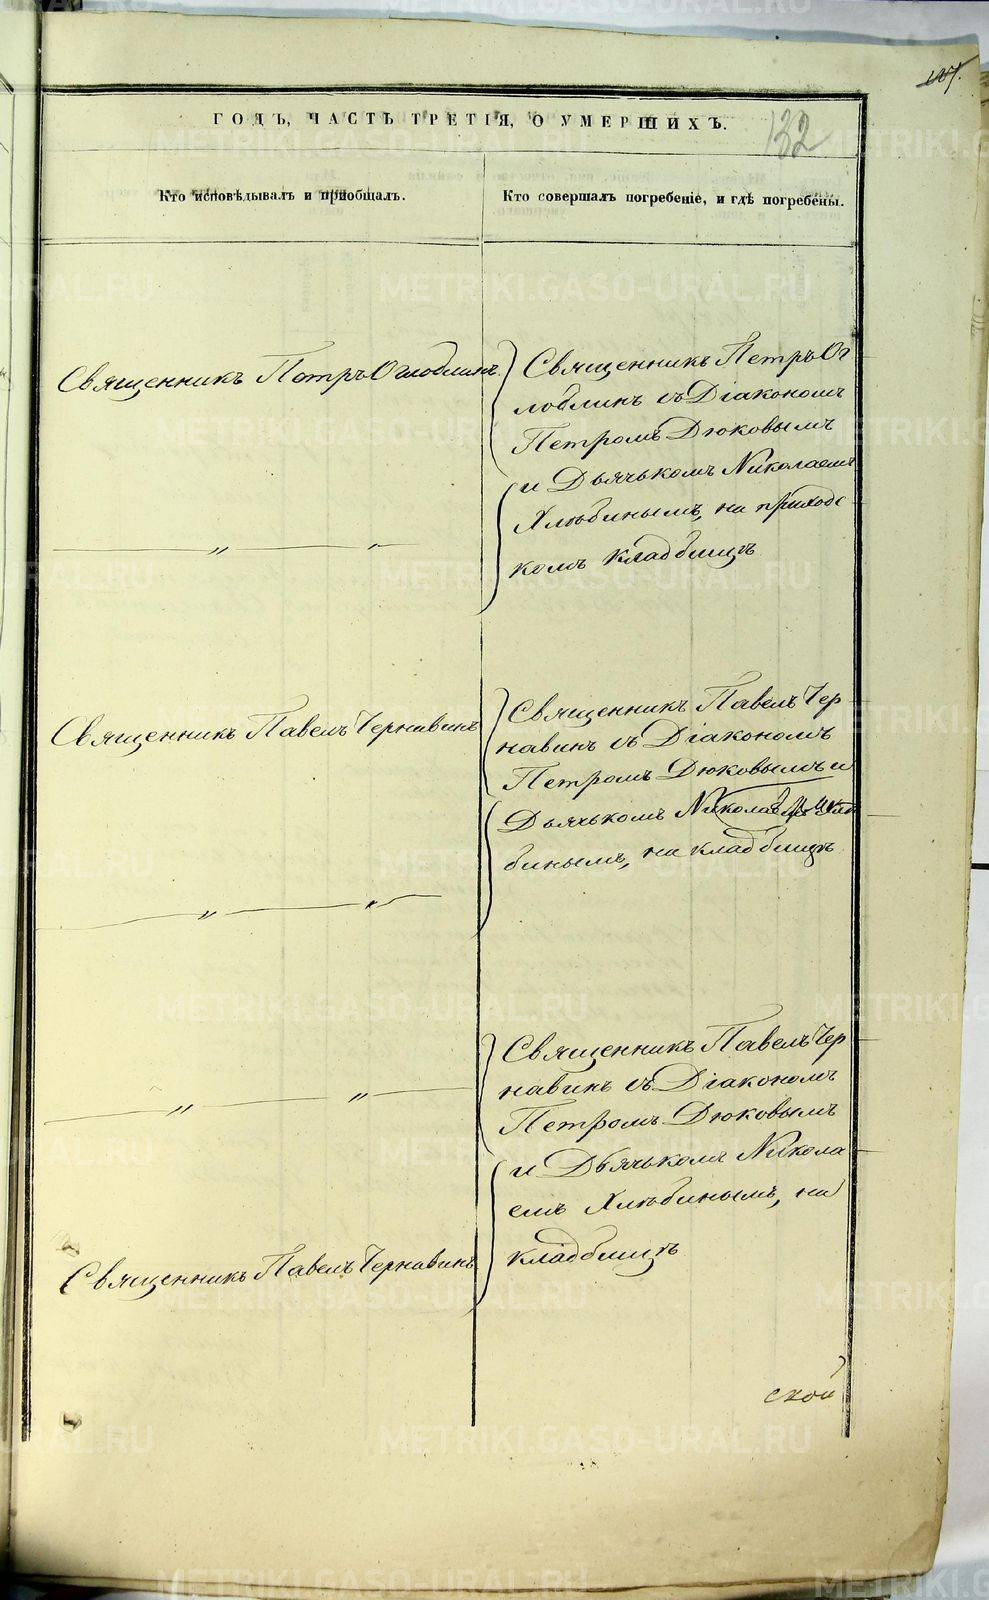 107.
132
ГОДЪ, ЧАСТЬ ТРЕТІЯ, О УМЕРШИХЪ.
Кто исповѣдывалъ и пріобщалъ.
Кто совершалъ погребеніе, и гдѣ погребены.
Священникъ Петръ Оглоблинъ.
Священникъ Петръ Ог
лоблинъ съ Діакономъ
Петромъ Дюковымъ
и Дьячькомъ Николаемъ
Хлѣбинымъ, на приходс
комъ кладбищѣ
Священникъ Павелъ Чернавинъ
Священникъ Павелъ Чер
навинъ съ Діакономъ
Петромъ Дюковымъ и
Дьячькомъ
бинымъ, на кладбищѣ
Священникъ Павелъ Чер
навинъ съ Діакономъ
Петромъ Дюковымъ
и Дьячькомъ Никола
емъ Хлѣбинымъ, на
кладбищѣ
Священникъ Павелъ Чернавинъ
ской
METRIKI.GASO-URAL.RU